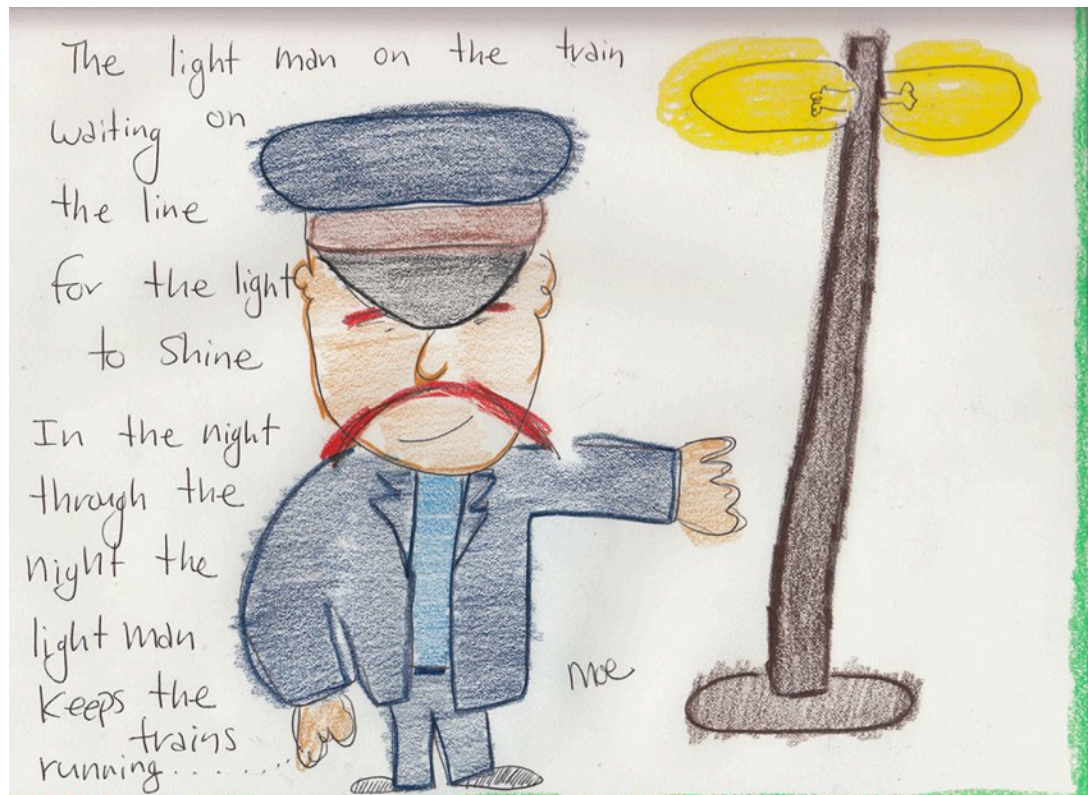 The light man on the train
waiting on
the line
for the light
to shine
In the night
through the
night the
light man
keeps the
trains
running........
moe